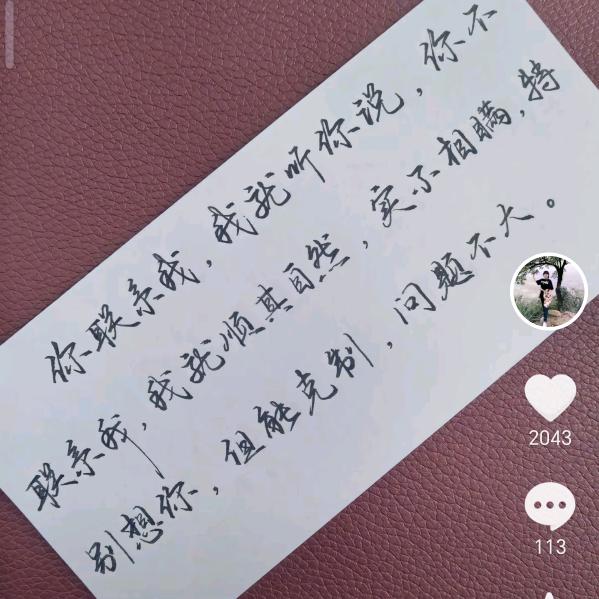 你联系我，我就听你说，你不
联系我，我就顺其自然，实不相瞒，特
别想你，但能克制，问题不大。
2043
113